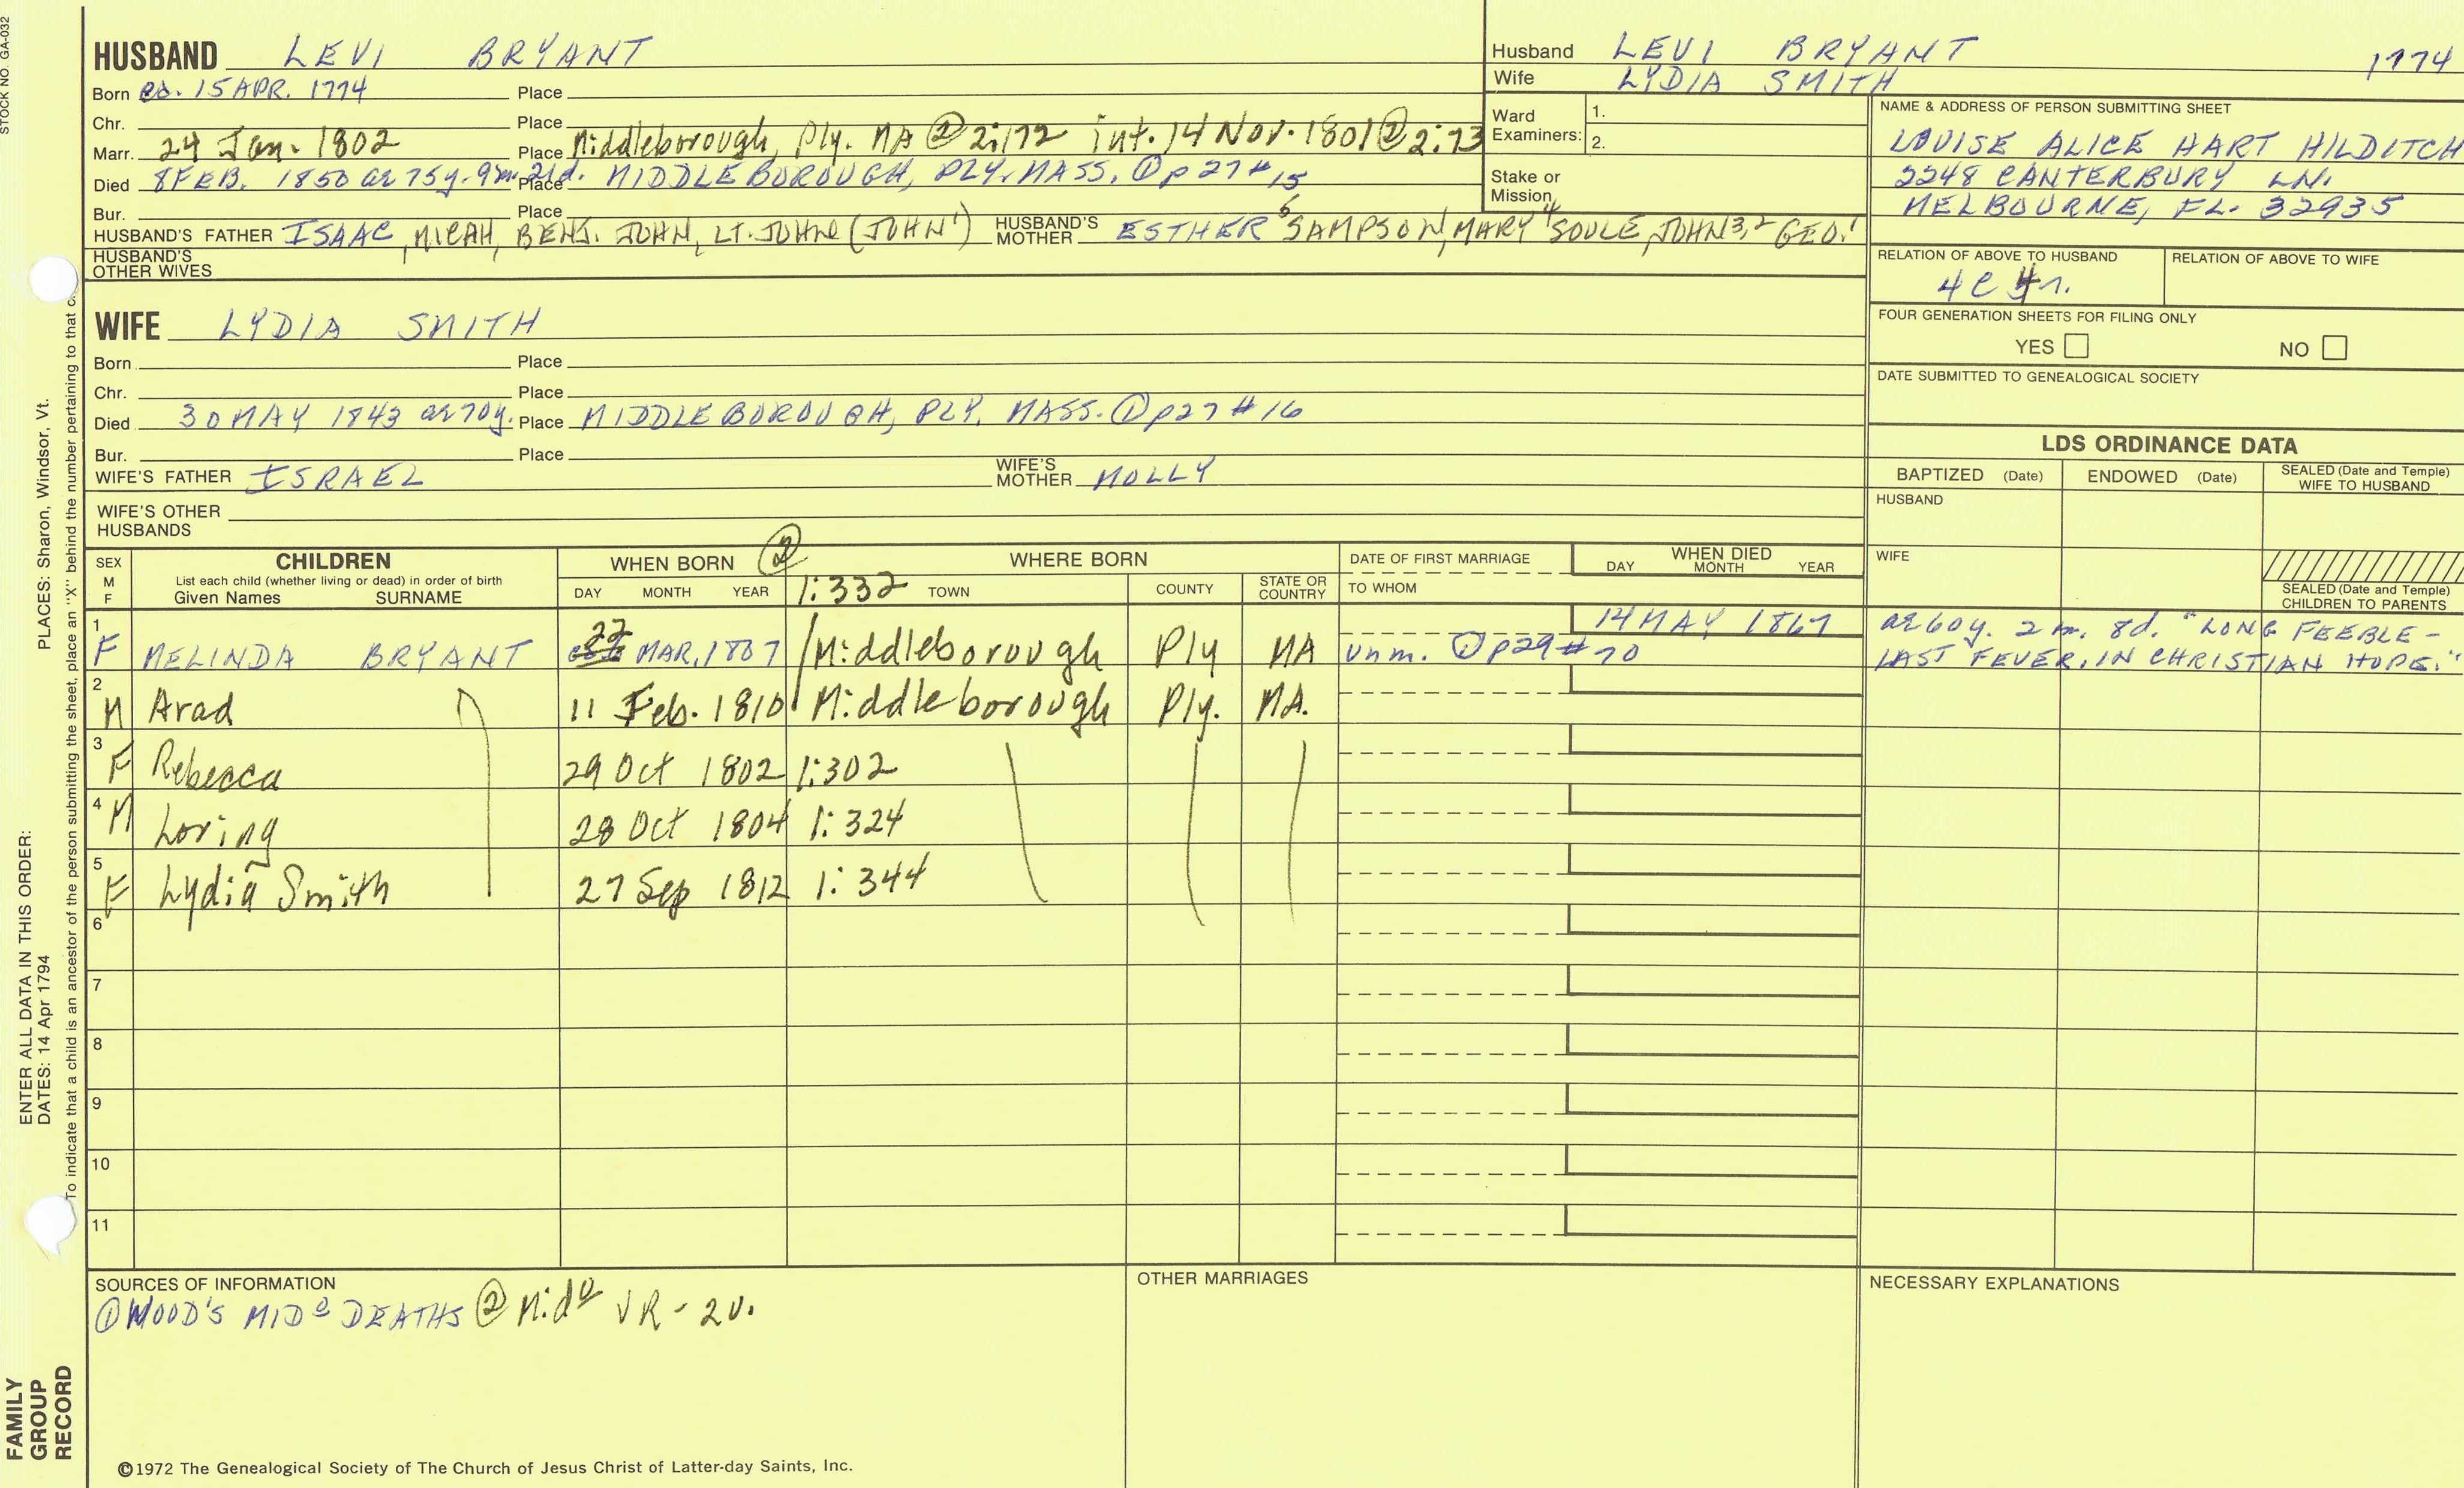 STOCK NO. GA-032
HUSBAND LEVI BRYANT
Born ca. 15 APR. 1774 Place
Chr. Place
Marr. 24 Jan. 1802 Place Middleborough, Ply. MA ② 2:172 int. 14 Nov. 1801 ② 2:73
Died 8 FEB. 1850 ae 75y. 9m. 21d. Place MIDDLEBOROUGH, PLY. MASS. ① p 27 # 15
Bur. Place
HUSBAND'S FATHER ISAAC, MICAH, BENJ. JOHN, LT. JOHN (JOHN¹) HUSBAND'S MOTHER ESTHER⁶ SAMPSON, MARY⁴ SOULE, JOHN³,² GEO.¹
HUSBAND'S OTHER WIVES
Husband LEVI BRYANT 1774
Wife LYDIA SMITH
Ward Examiners: 1.
2.
Stake or Mission
NAME & ADDRESS OF PERSON SUBMITTING SHEET
LOUISE ALICE HART HILDITCH
2248 CANTERBURY LN.
MELBOURNE, FL. 32935
RELATION OF ABOVE TO HUSBAND RELATION OF ABOVE TO WIFE
4c 4r.
FOUR GENERATION SHEETS FOR FILING ONLY
YES NO
DATE SUBMITTED TO GENEALOGICAL SOCIETY
WIFE LYDIA SMITH
Born Place
Chr. Place
Died 30 MAY 1843 ae 70y. Place MIDDLEBOROUGH, PLY. MASS. ① p27 # 16
Bur. Place
WIFE'S FATHER ISRAEL WIFE'S MOTHER MOLLY
WIFE'S OTHER HUSBANDS
LDS ORDINANCE DATA
BAPTIZED (Date) ENDOWED (Date) SEALED (Date and Temple) WIFE TO HUSBAND
HUSBAND
WIFE
SEALED (Date and Temple) CHILDREN TO PARENTS
SEX M F
CHILDREN
List each child (whether living or dead) in order of birth
Given Names SURNAME
WHEN BORN ②
DAY MONTH YEAR
WHERE BORN
1:332 TOWN COUNTY STATE OR COUNTRY
DATE OF FIRST MARRIAGE
TO WHOM
WHEN DIED
DAY MONTH YEAR
1 F MELINDA BRYANT 22 MAR. 1807 Middleborough Ply MA unm. ① p29 # 70 14 MAY 1867 ae 60y. 2 m. 8d. "LONG FEEBLE -
LAST FEVER, IN CHRISTIAN HOPE."
2 M Arad 11 Feb. 1810 Middleborough Ply. MA.
3 F Rebecca 29 Oct 1802 1:302
4 M Loring 28 Oct 1804 1:324
5 F Lydia Smith 27 Sep 1812 1:344
6
7
8
9
10
11
SOURCES OF INFORMATION
① WOOD'S MIDº DEATHS ② Midº VR - 2v.
OTHER MARRIAGES
NECESSARY EXPLANATIONS
©1972 The Genealogical Society of The Church of Jesus Christ of Latter-day Saints, Inc.
FAMILY
GROUP
RECORD
ENTER ALL DATA IN THIS ORDER:
DATES: 14 Apr 1794 PLACES: Sharon, Windsor, Vt.
To indicate that a child is an ancestor of the person submitting the sheet, place an "X" behind the number pertaining to that